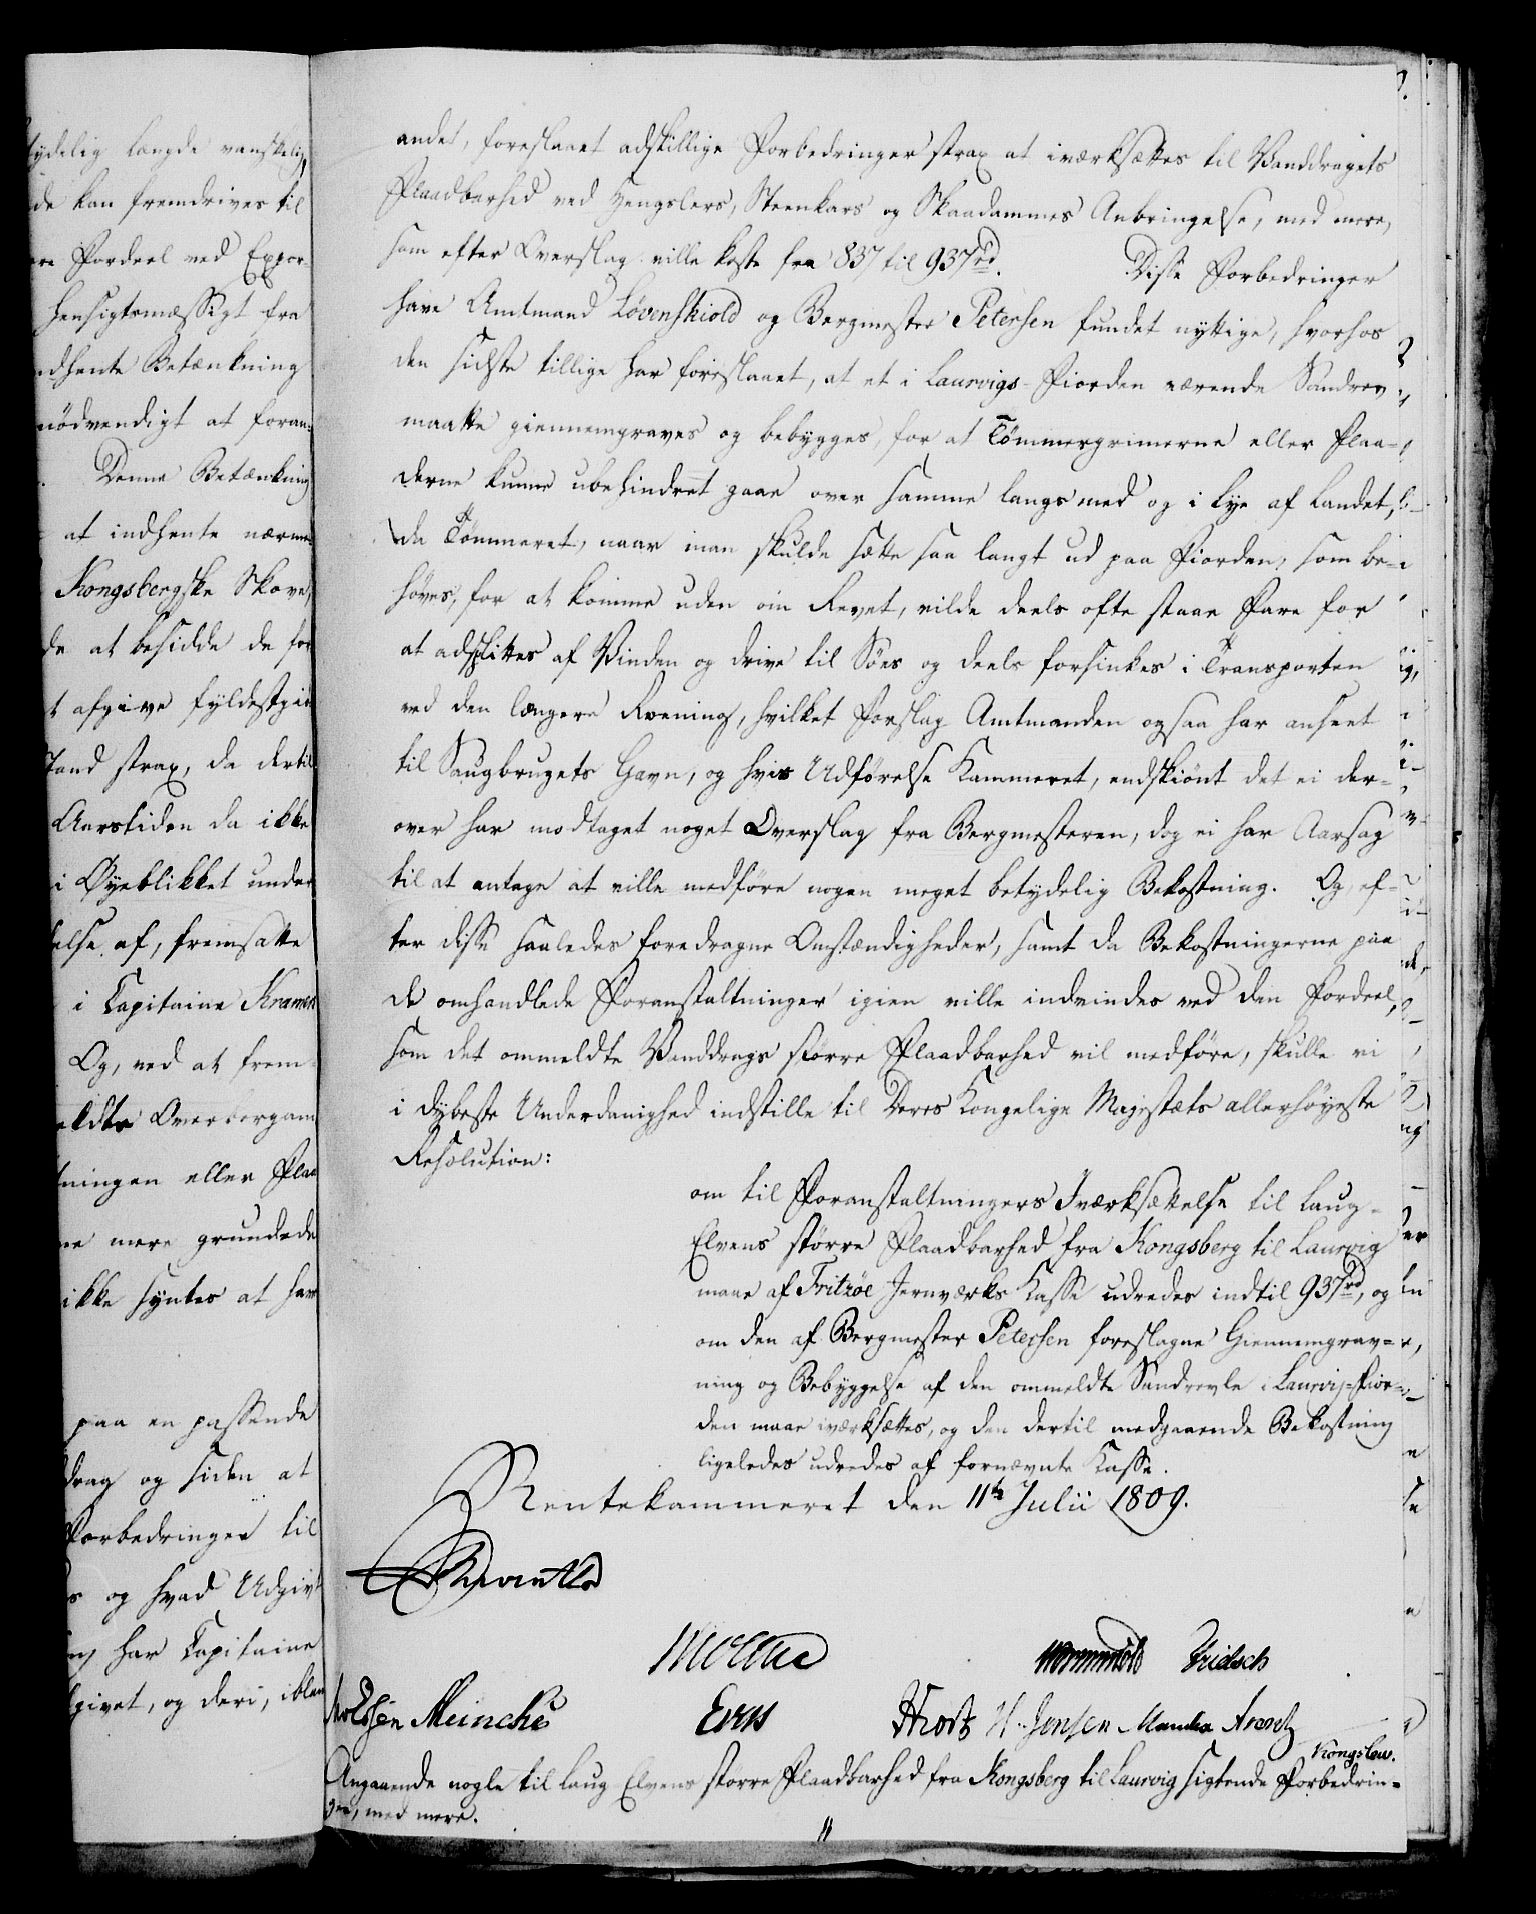 tydelig længde vanskelig,
de kan fremdrives til
re Fordeel ved Expor-
hensigtsmæssigt fra
dhente Betænkning
nödvendigt at foran=
Denne Betænkning
at indhente nærme-
Kongsbergske Skove,
de at besidde de for
t afgive fyldestgiö
tand strax, da dertil
Aarstiden da ikke
i Øyeblikket under
else af, fremsatte
i Capitaine Kramer
Og, ved at frem-
eldte Overbergam
tningen eller Flaa
ne mere grundede
ikke syntes at har
paa en passende
drag og siden at
Forbedringer til
s og hvad Udgivt
har Capitaine
givet, og deri, iblan
andet, foreslaaet adskillige Forbedringer strax at iværksættes til Vanddragets
Flaadbarhed ved Hengslers, Steenkars og Skaadammes Anbringelse, med mere,
som efter Overslag ville koste fra 837 til 937 rd. Disse Forbedringer
have Amtmand Løvenskiold og Bergmester Petersen fundet nyttige, hvorhos
den sidste tillige har foreslaaet, at et i Laurvigs-Fiorden værende Sandrev
maatte giennemgraves og bebygges, for at Tömmergrimerne eller Flaa-
derne kunne ubehindret gaae over samme langs med og i Lye af Landet,
da Tömmeret, naar man skulde sætte saa langt ud paa Fiorden, som be-
höves, for at komme uden om Revet, vilde deels ofte staae Fare for
at adsplittes af Vinden og drive til Söes og deels forsinkes i Transporten
ved den længere Roening, hvilket Forslag Amtmanden ogsaa har anseet
til Saugbrugets Gavn, og hvis Udförelse Kammeret, endskiönt det ei der-
over har modtaget noget Overslag fra Bergmesteren, dog ei har Aarsag
til at antage at ville medföre nogen meget betydelig Bekostning. Og, ef-
ter disse saaledes foredragne Omstændigheder, samt da Bekostningerne paa
de omhandlede Foranstaltninger igien ville indvindes ved den Fordeel,
som det ommeldte Vanddrags större Flaadbarhed vil medföre, skulle vi
i dybeste Underdanighed indstille til Deres Kongelige Majestæts allerhöyeste
Resolution:
om til Foranstaltningers Iværksættelse til Laug-
Elvens större Flaadbarhed fra Kongsberg til Laurvig
maae af Fritzöe Jernværks Kasse udredes indtil 937 rd, og
om den af Bergmester Petersen foreslagne Giennemgrav=
ning og Bebyggelse af den ommeldte Sandrevle i Laurvig=Fior=
den maae iværksættes, og den dertil medgaaende Bekostning
ligeledes udredes af fornævnte Kasse.
Rentekammeret den 11te Julii 1809.
Reventlo
Moltke
Wormskiold Fridsch
Meincke
Hrost H. Jensen Manthe Arentz
Kongslew.
Angaaende nogle til Laug Elvens större Flaadbarhed fra Kongsberg til Laurvig sigtende Forbedrin=
ger, med mere.